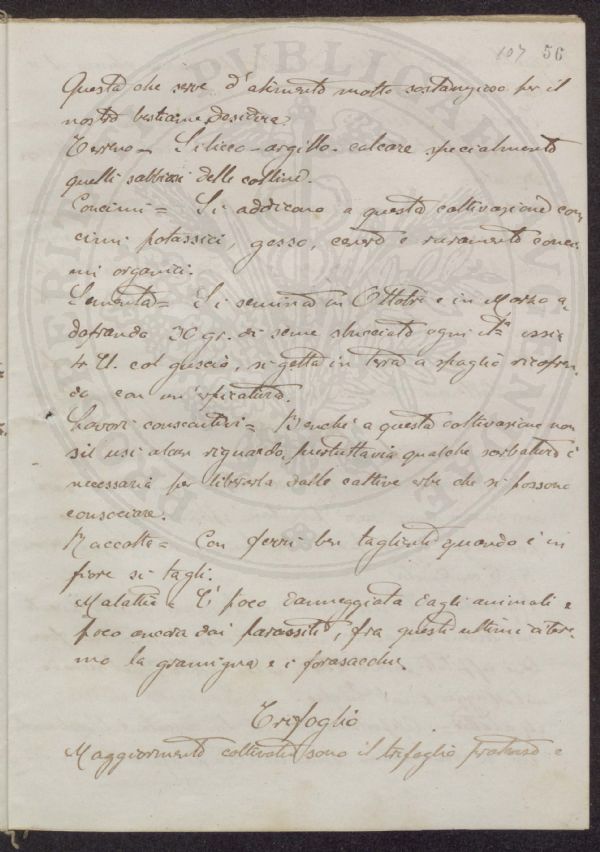 107 56
Questa che serve d'alimento molto sostanzioso per il
nostro bestiame desidera:
Terreno = Siliceo-argillo-calcare specialmente
quelli sabbiosi delle colline.
Concimi = Si addicono a questa coltivazione con
cimi potassici, gesso, cenere e raramente conci
mi organici.
Sementa = Si semina in Ottobre e in Marzo a
doprando 30 gr. di seme sbucciato ogni
4 col guscio, si getta in terra a spaglio ricopren
do con un'erpicatura.
Lavori consecutivi = Benché a questa coltivazione non
si usi alcun riguardo, pur tuttavia qualche sarchiatura è
necessaria per liberarla dalle cattive erbe che si possono
consociare.
Raccolta = Con ferri ben taglienti quando è in
fiore si tagli.
Malattie = E' poco danneggiata dagli animali e
poco ancora dai parassiti, fra questi ultimi citere
mo la gramigna e i forasacchi.
Trifoglio
Maggiormente coltivati sono il trifoglio pratense e